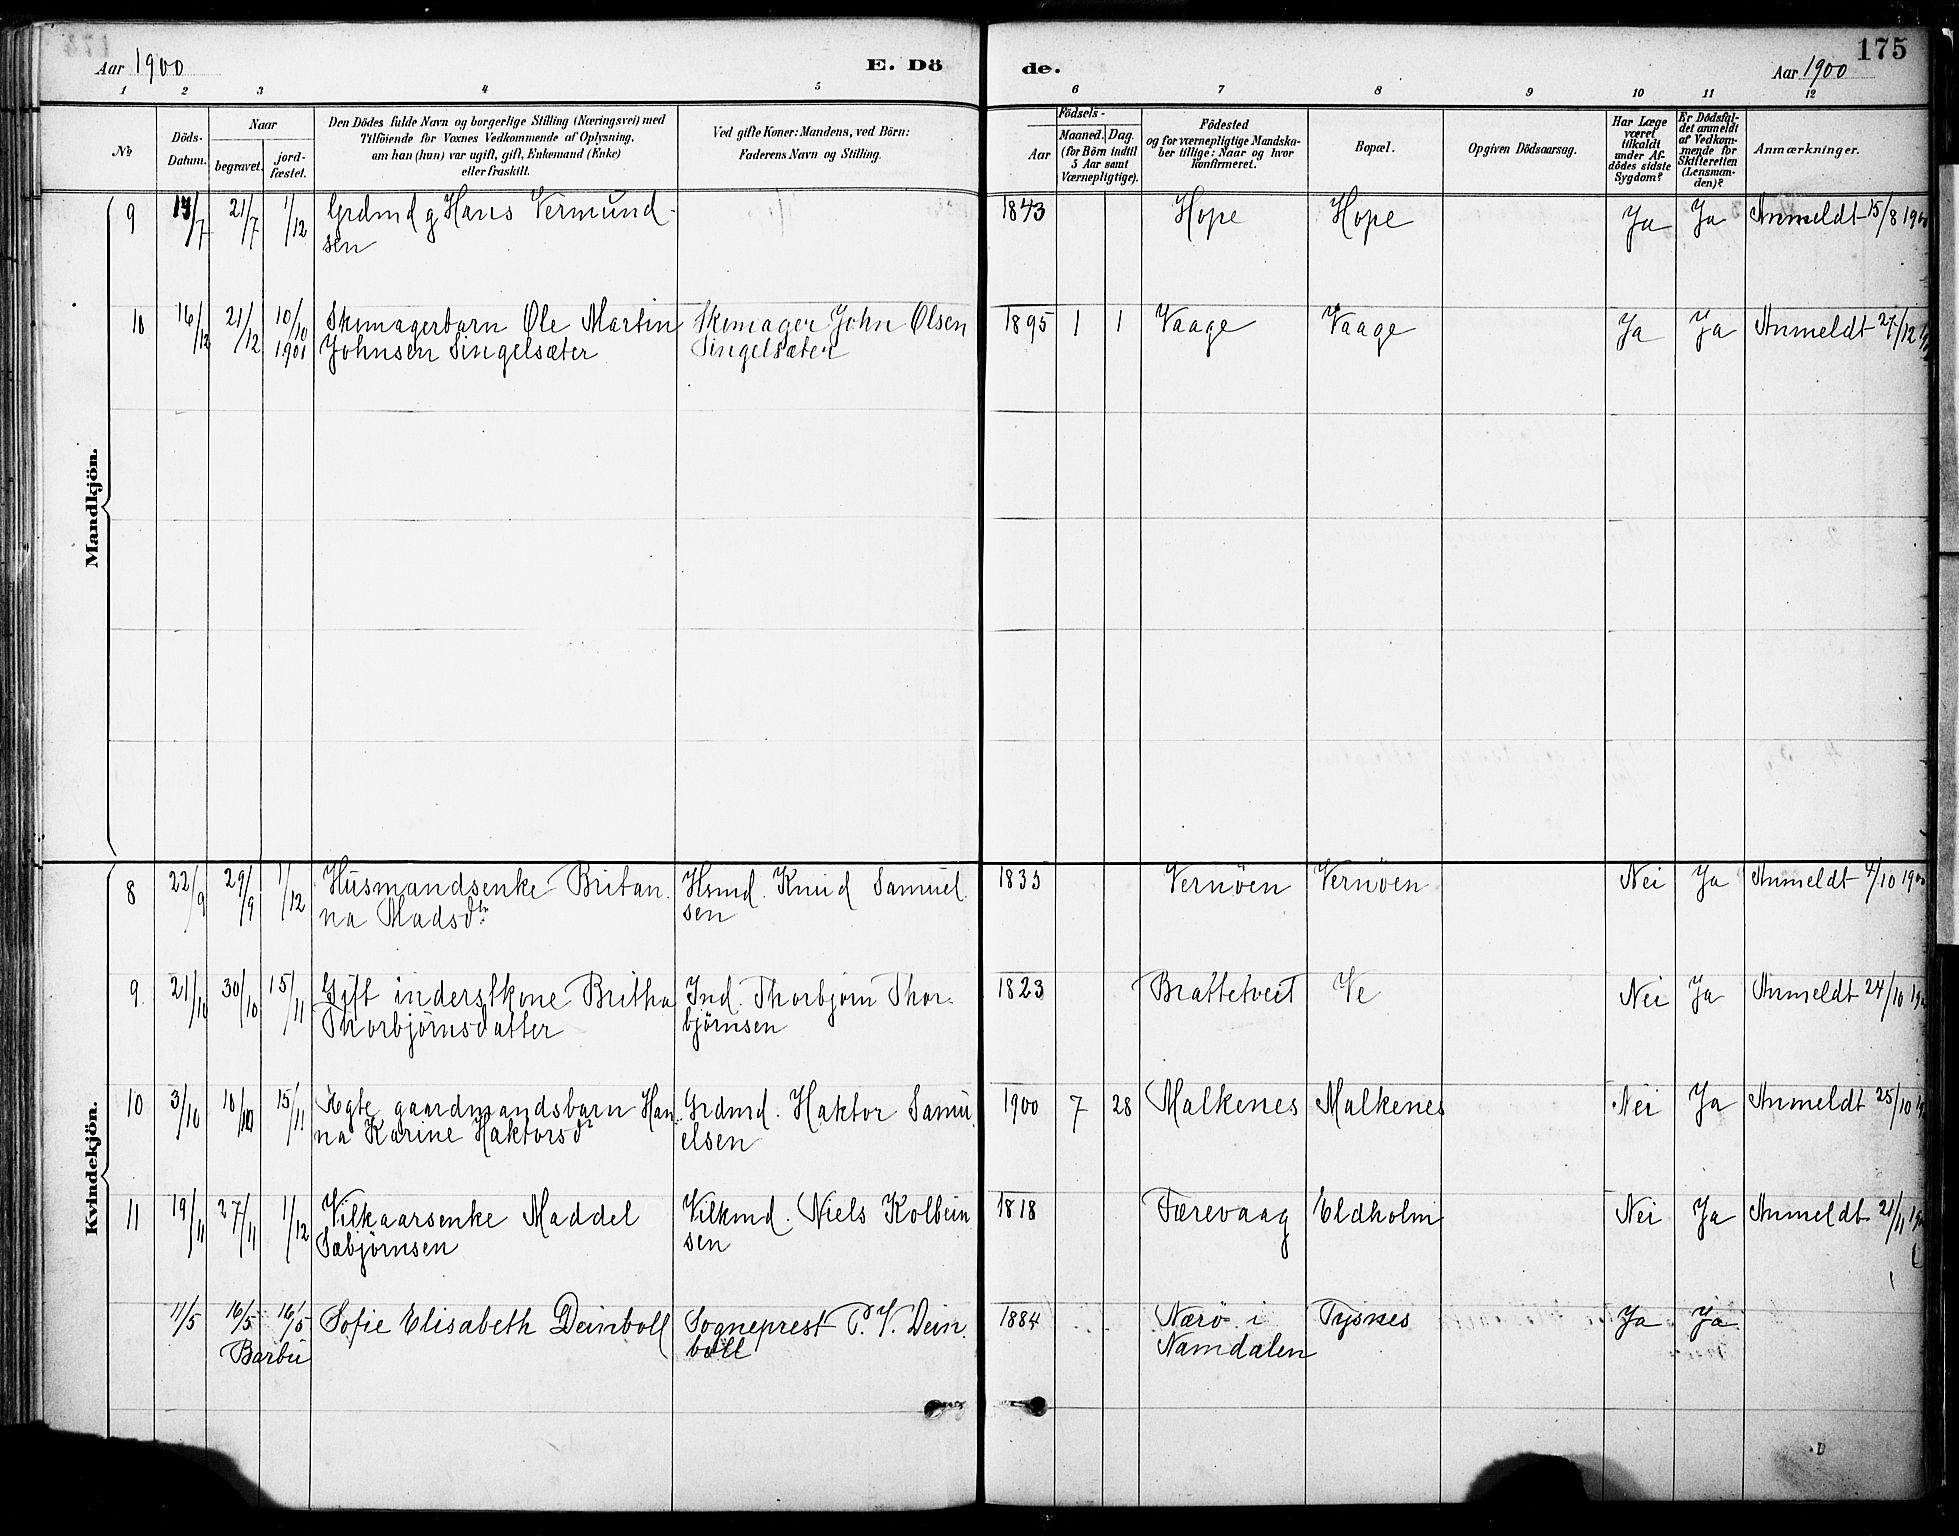 175
Aar 1900
E. Dö
de.
Aar 1900
1 2 3 4 5 6 7 8 9 10 11 12
№
Döds-Datum.
Naar
begravet.
jord-fæstet.
Den Dödes fulde Navn og borgerlige Stilling (Næringsvei) med
Tilföiende for Voxnes Vedkommende af Oplysning,
om han (hun) var ugift, gift, Enkemand (Enke)
eller fraskilt.
Ved gifte Koner: Mandens, ved Börn:
Faderens Navn og Stilling.
Födsels-
Aar
Maaned. Dag.
(for Börn indtil
5 Aar samt
Værnepligtige).
Födested
og for værnepligtige Mandska-
ber tillige: Naar og hvor
konfirmeret.
Bopæl.
Opgiven Dödsaarsag.
Har Læge
været
tilkaldt
under Af-
dödes sidste
Sygdom?
Er Dödsfal-
det anmeldt
af Vedkom-
mende for
Skifteretten
(Lensman-
den)?
Anmærkninger.
Mandkjön.
9 /7 21/7 1/12 Grdmd g Hans Vermund- 1843 Hope Hope Ja Ja Anmeldt 15/8 1900
sen
10 16/12 21/12 10/10 Skomagerbarn Ole Martin Skomager John Olsen 1895 1 1 Vaage Vaage Ja Ja Anmeldt 27/12
1901 Johnsen Singelsæter Singelsæter
Kvindekjön.
8 22/9 29/9 1/12 Husmandsenke Britan- Hsmd. Knud Samuel- 1835 Vernöen Vernöen Nei Ja Anmeldt 4/10 1900
na Madsdtr sen
9 21/10 30/10 15/11 Gift inderstkone Britha Ind. Thorbjörn Thor- 1823 Brattetveit Ve Nei Ja Anmeldt 24/10
Thorbjörnsdatter björnsen
10 3/10 10/10 15/11 Ægte gaardmandsbarn Han- Grdmd. Haktor Samu- 1900 7 28 Malkenes Malkenes Nei Ja Anmeldt 25/10
na Karine Haktorsdr elsen
11 19/11 27/11 1/12 Vilkaarsenke Maddel Vilkmd. Niels Kolbein- 1818 Færevaag Eldholm Nei Ja Anmeldt 21/11
Sæbjörnsen sen
11/5 16/5 16/5 Sofie Elisabeth Deinboll Sogneprest P. V. Dein- 1884 Nærö i Tysnes Ja Ja
Barbu boll Namdalen